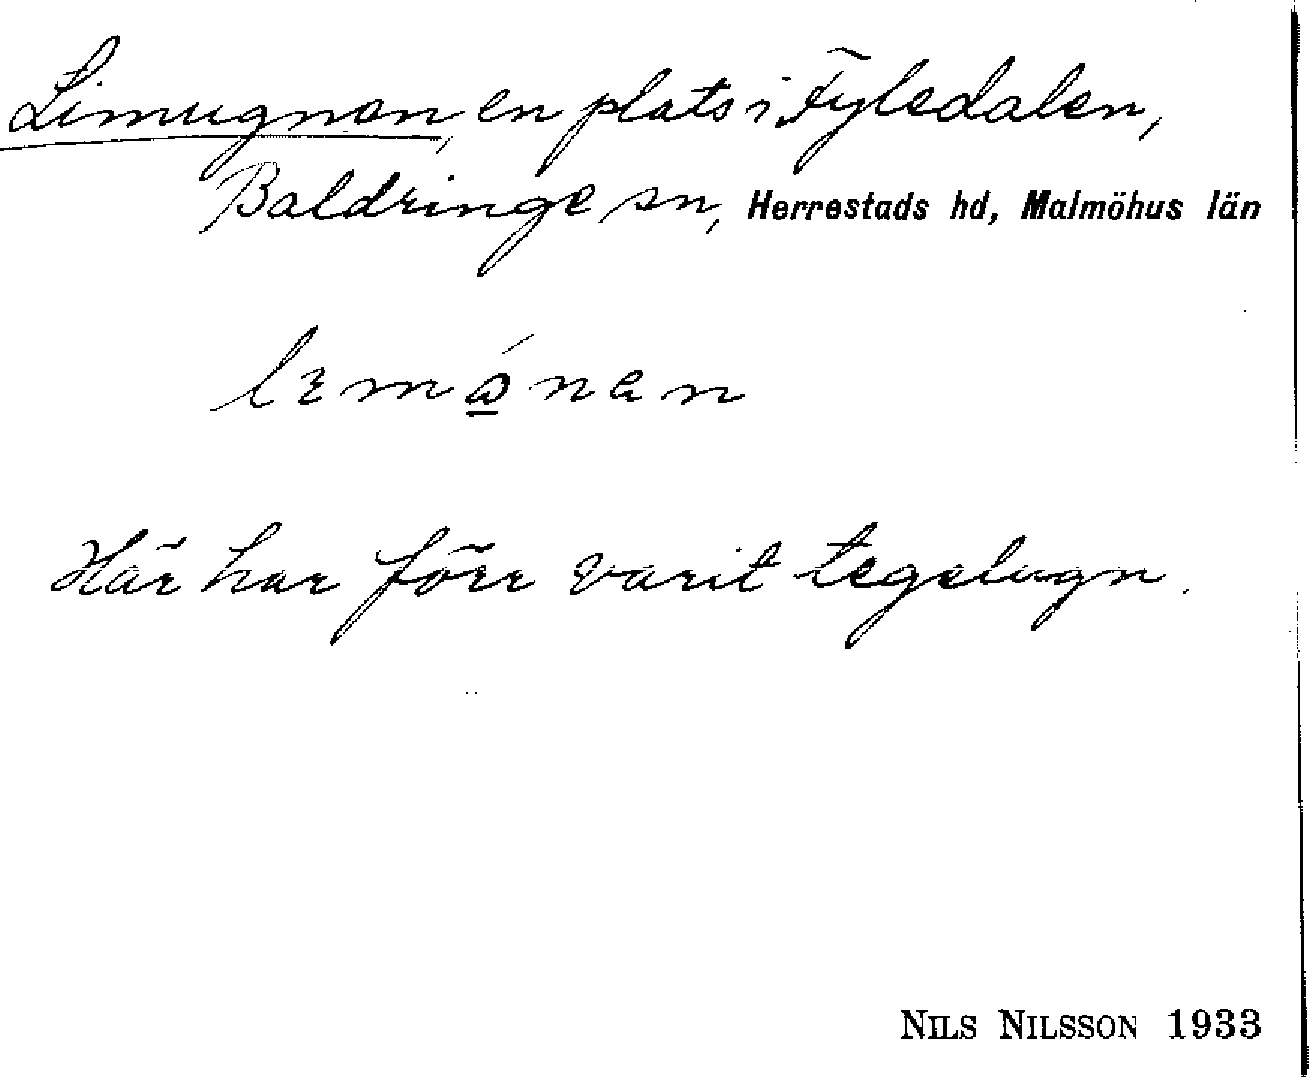 Limugnen, en plats i Fyledalen,
Baldringe sn, Herrestads hd, Malmöhus län
Här har förr varit tegelugn.
NILS NILSSON 1933